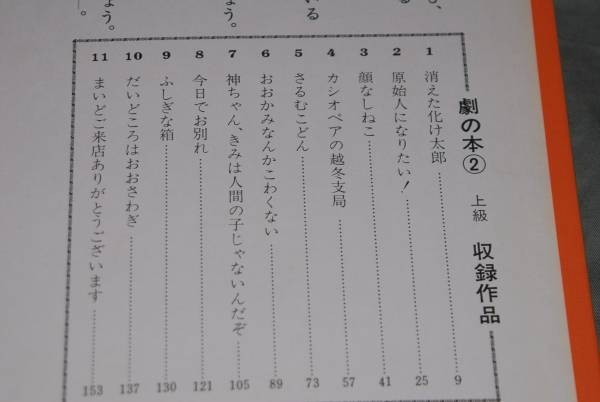 劇の本② 上級 収録作品
1 消えた化け太郎 9
2 原始人になりたい！ 25
3 顔なしねこ 41
4 カシオペアの越冬支局 57
5 さるむこどん 73
6 おおかみなんかこわくない 89
7 神ちゃん、きみは人間の子じゃないんだぞ 105
8 今日でお別れ 121
9 ふしぎな箱 130
10 だいどころはおおさわぎ 137
11 まいどご来店ありがとうございます 153
も、
る
いる
ょう。
ょう。